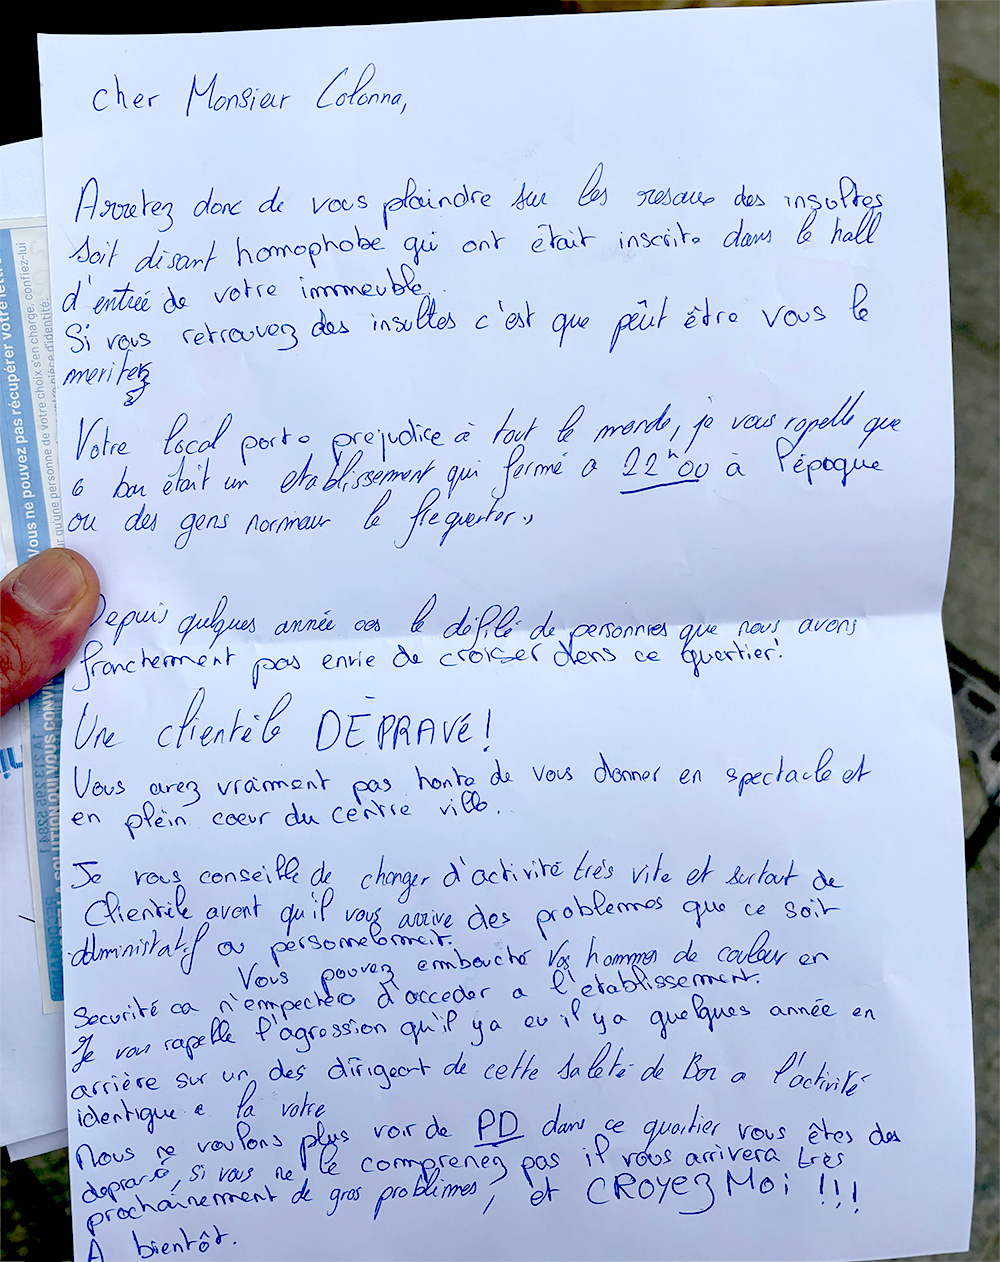 cher Monsieur Colonna,
Arretez donc de vous plaindre sur les resaux des insultes
soit disant homophobe qui ont était inscrite dans le hall
d'entrée de votre immmeuble.
Si vous retrouvez des insultes c'est que peût être vous le
meritez
Votre local porte prejudice à tout le monde, je vous rapelle que
ce bar était un etablissement qui fermé a 22h00 à l'époque
ou des gens normaux le frequenter.,
Depuis quelques année ces le défilé de personnes que nous avons
franchement pas envie de croiser dans ce quartier!
Une clientèle DÉPRAVÉ!
Vous avez vraiment pas honte de vous donner en spectacle et
en plein coeur du centre ville.
Je vous conseille de changer d'activité très vite et surtout de
Clientèle avant qu'il vous arrive des problemes que ce soit
administratif ou personnelement.
Vous pouvez embouché vos hommes de couleur en
Securité ca n'empechera d'acceder a l'etablissement.
Je vous rapelle l'agrossion qu'il y a eu il y a quelques année en
arrière sur un des dirigeant de cette saleté de Bar a l'activité
identique a la votre
Nous ne voulons plus voir de PD dans ce quartier vous êtes des
depravé, si vous ne le comprenez pas il vous arrivera très
prochainement de gros problèmes, et CROYEZ MOI !!!
A bientôt.
Vous ne pouvez pas récupérer votre lettre
qu'une personne de votre choix s'en charge, confiez-lui
votre pièce d'identité.
LA SOLUTION QUI VOUS CONVI